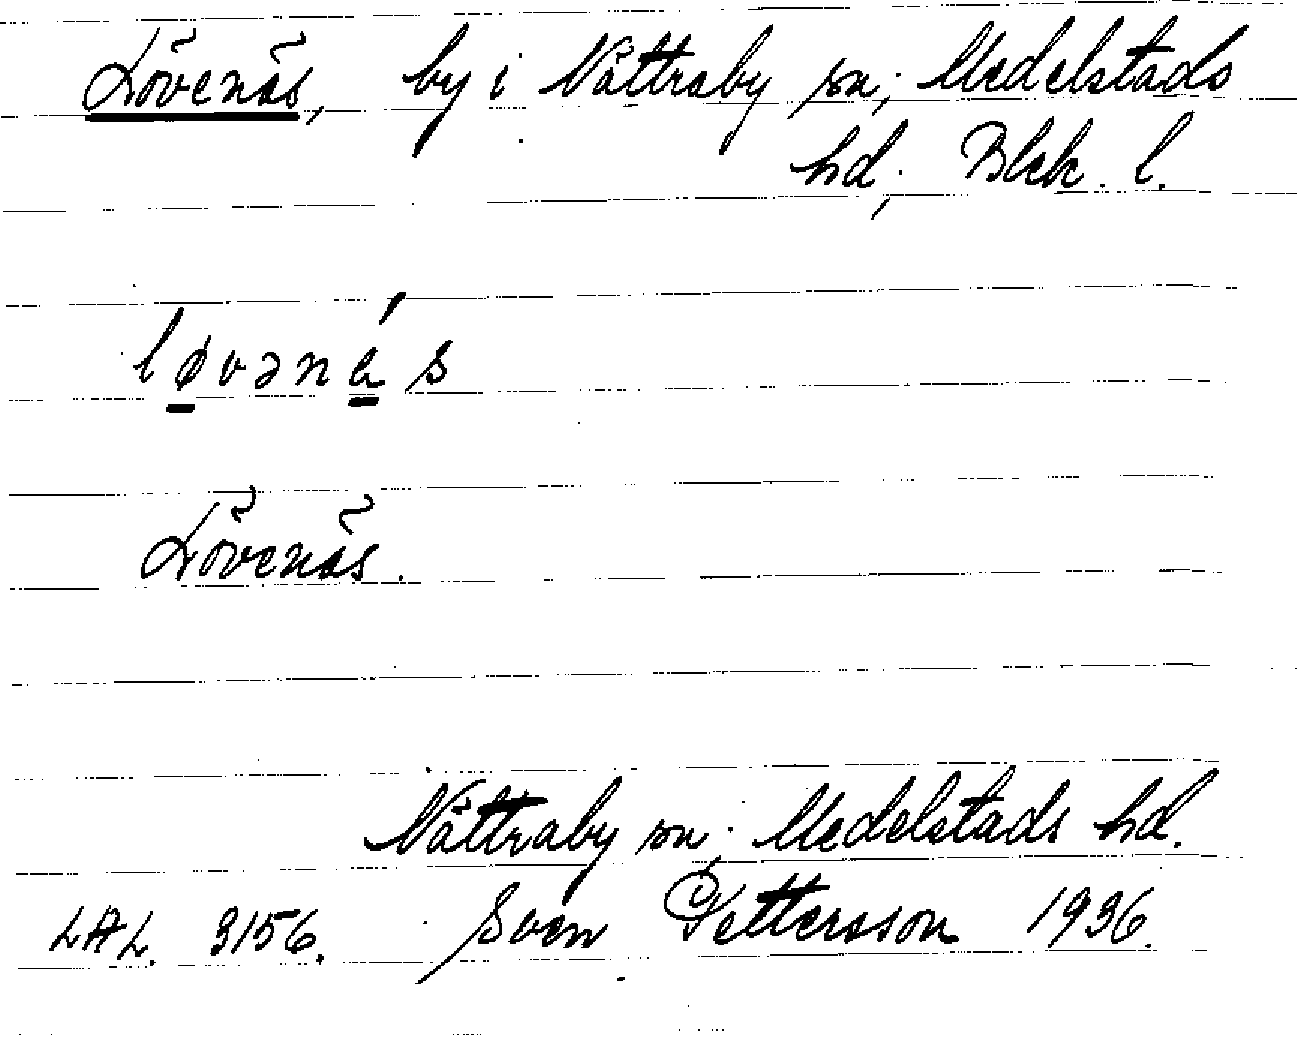 Lövenäs, by i Nättraby sn; Medelstads
hd; Blek. l.
løvəná̱s
Lövenäs.
Nättraby sn; Medelstads hd.
LAL. 3156. Sven Pettersson 1936.